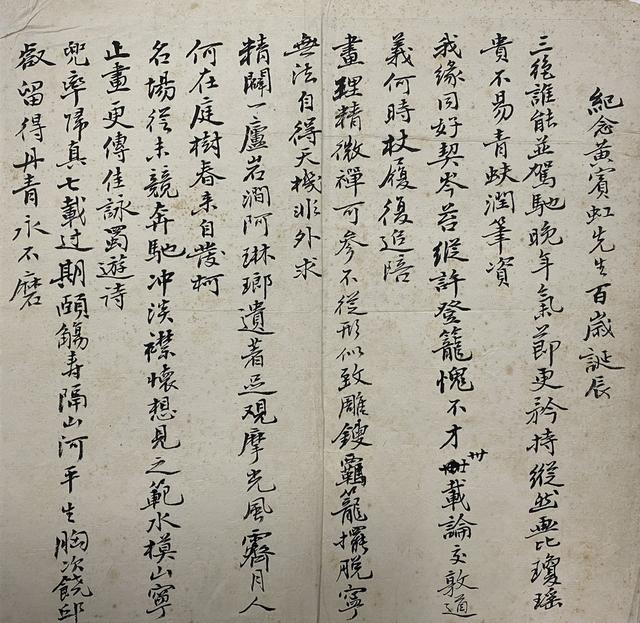 紀念黃賓虹先生百歲誕辰
三絕誰能並駕馳晚年氣節更矜持縱然無比瓊瑤
貴不易青蚨潤筆資
我緣同好契岑苔縱許登籠愧不才卅載論交敦道
義何時杖履復追陪
畫理精微禪可參不從形似致雕鎪羈籠擺脫寧
無法自得天機非外求
精闢一廬岩澗阿琳瑯遺著足观摩光風霽月人
何在庭樹春来自發柯
名場從未競奔馳冲淡襟懷想見之範水模山寧
止畫更傳佳詠蜀遊诗
兜率歸真七載过期頤觴壽隔山河平生胸次饒邱
壑留得丹青永不磨